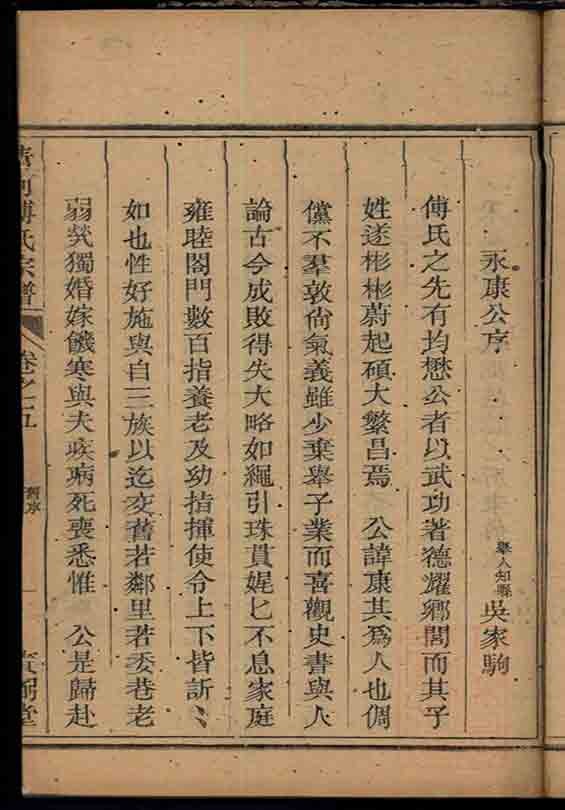 永康公序
舉人知縣 吳家駒
傅氏之先有均懋公者以武功著德耀鄉閭而其子
姓遂彬彬蔚起碩大繁昌焉 公諱康其爲人也倜
儻不羣敦尙氣義雖少棄舉子業而喜觀史書與人
論古今成敗得失大略如繩引珠貫娓匕不息家庭
雍睦閤門數百指養老及幼指揮使令上下皆訢〻
如也性好施與自三族以迄交舊若鄰里若委巷老
弱煢獨婚嫁饑寒與夫疾病死喪悉惟 公是歸赴
傅氏宗譜 卷之五 舊序 一